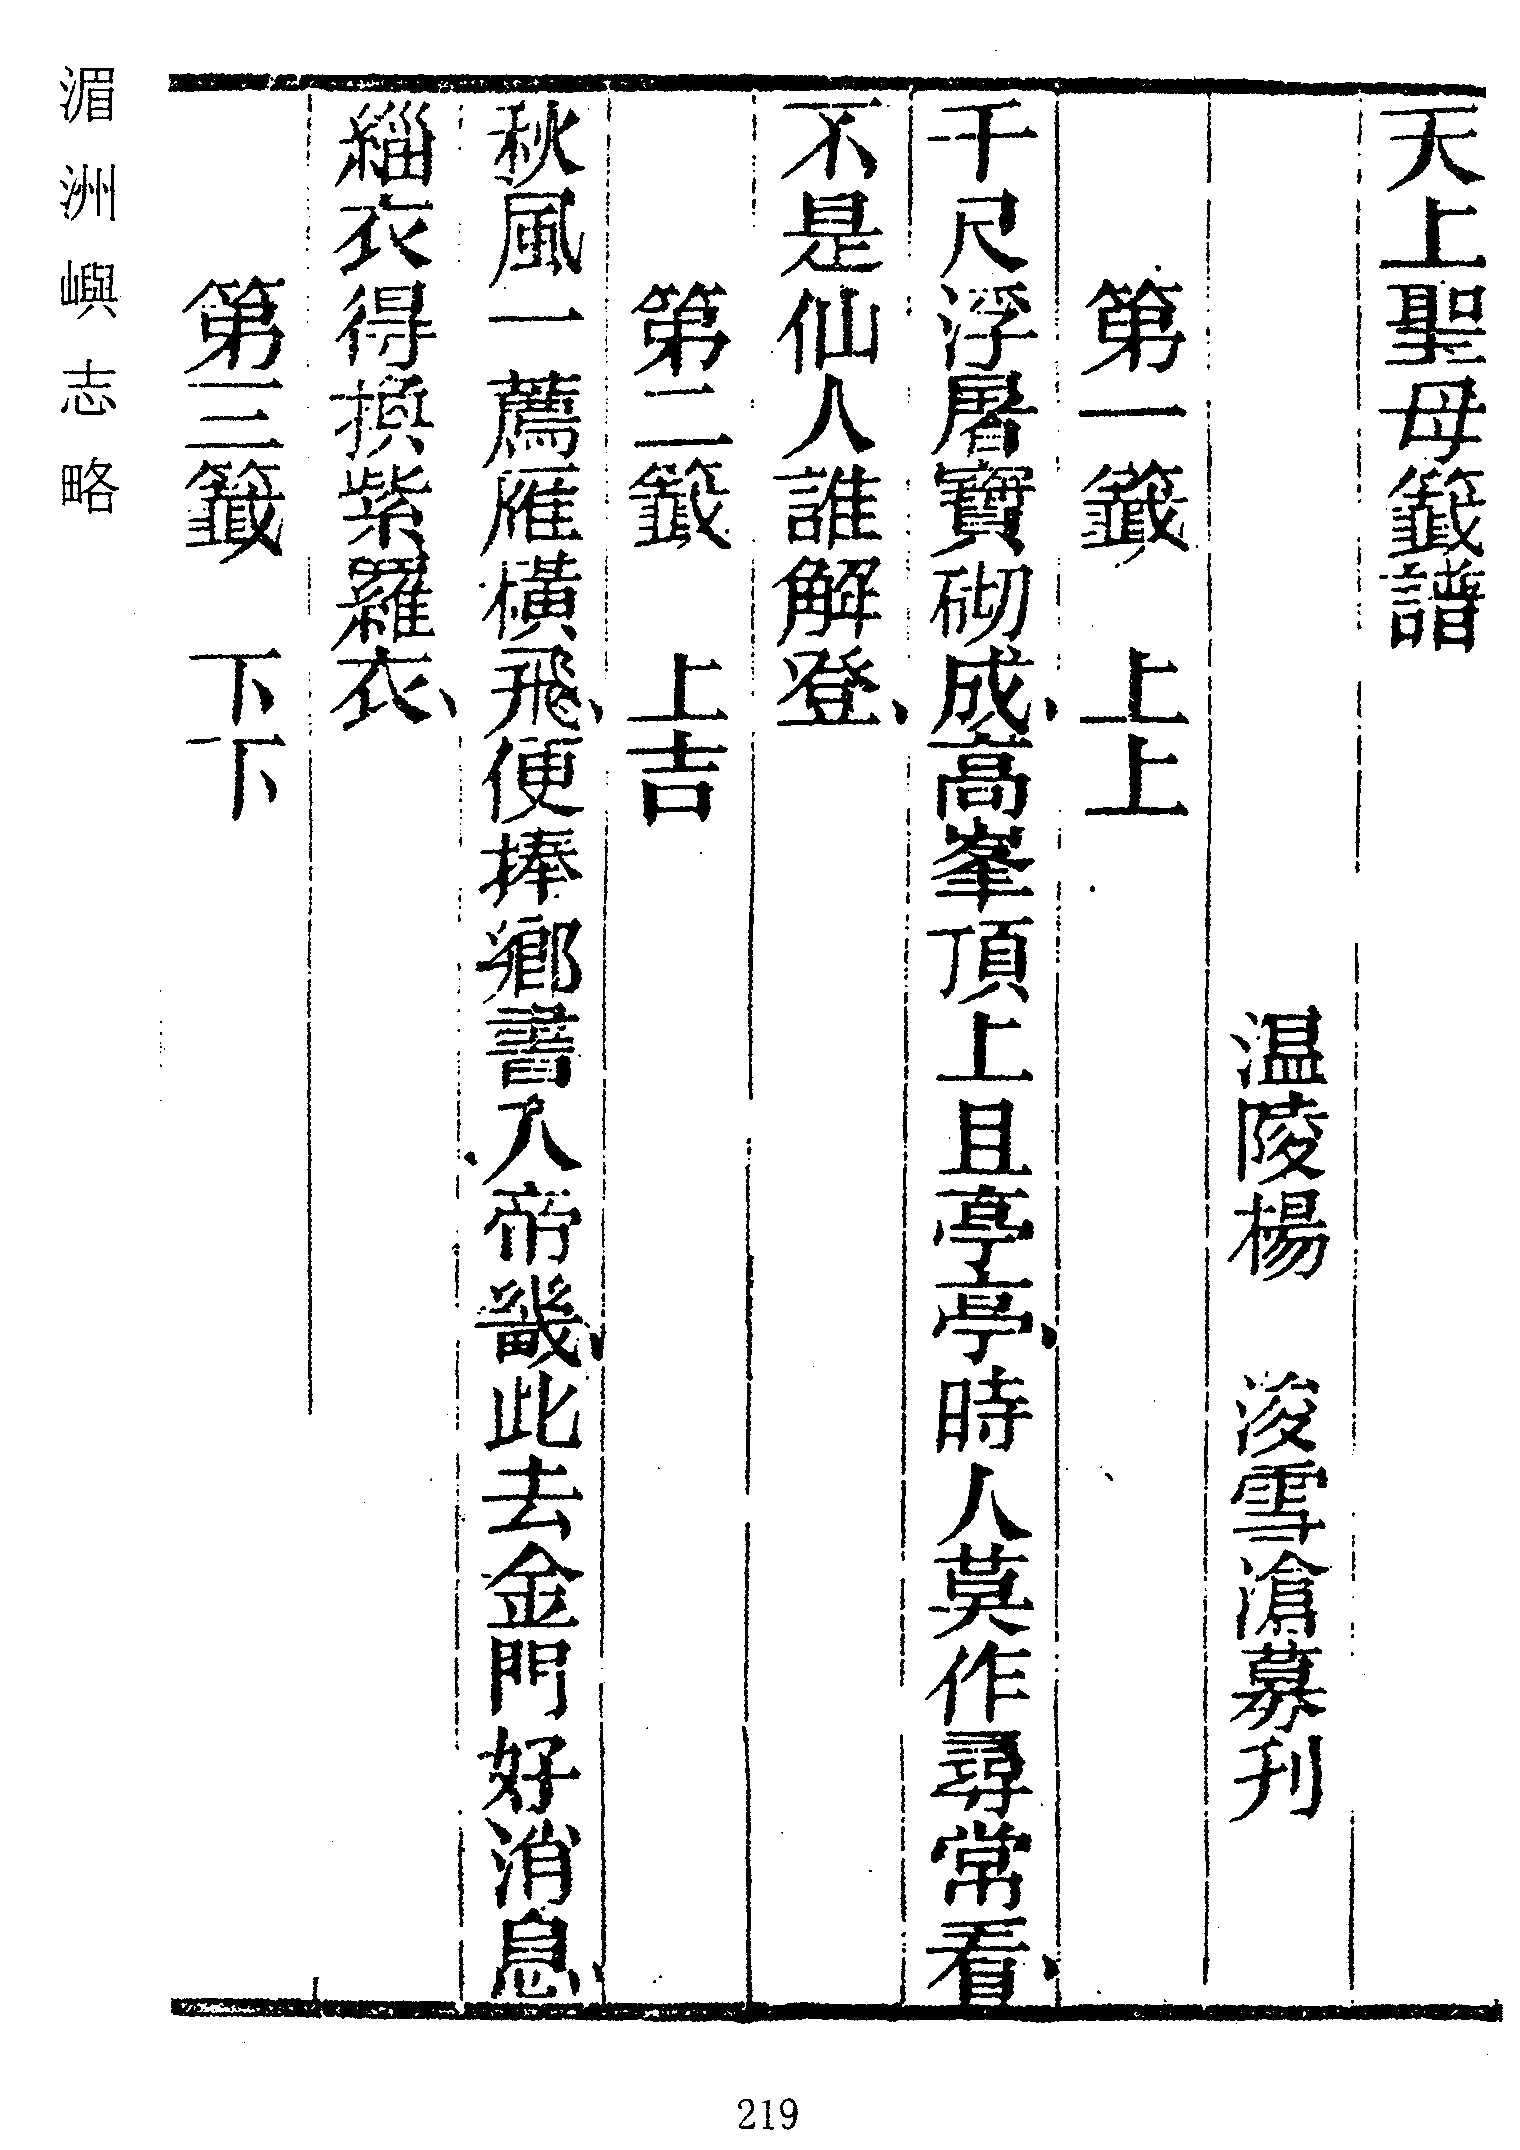 天上聖母籖譜
温陵楊　浚雪滄募刊
第一籖　上上
千尺浮屠寶砌成、高峯頂上且亭亭、時人莫作尋常看、
不是仙人誰解登、
第二籖　上吉
秋風一薦雁橫飛、便捧鄉書入帝畿、此去金門好消息、
緇衣得換紫羅衣、
第三籖　下下
湄洲嶼志略
219